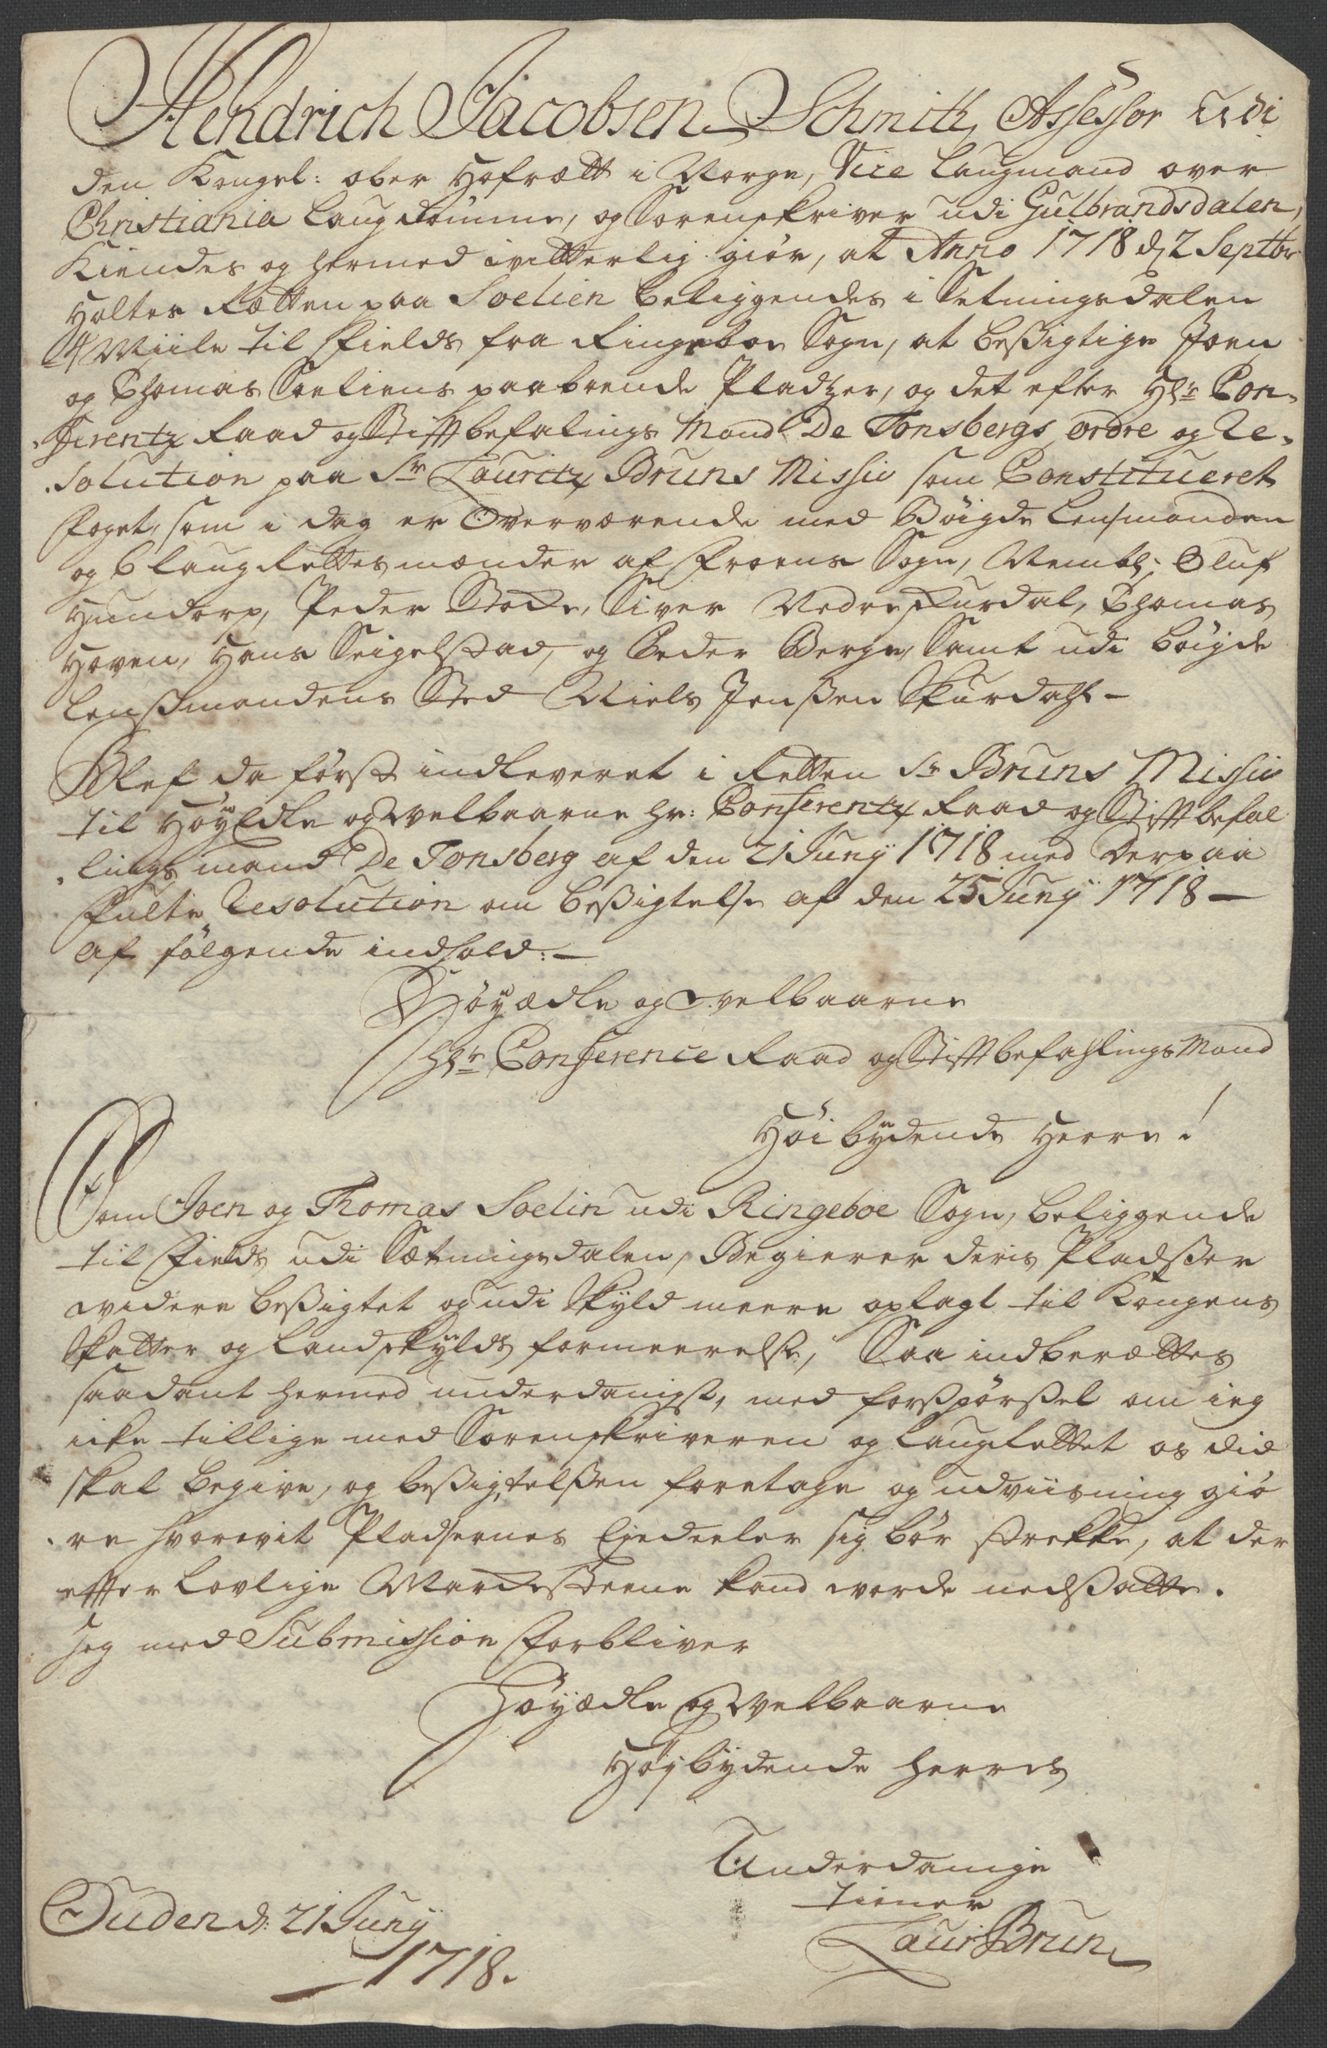 Hendrich Jacobsen Schmith, Assessor Udi
den Kongel: ober Hofrætt i Norge, Vice Laugmand over
Christiania Laugdømme, og Sorenskriver udi Gulbrandsdalen,
Kiendes og hermed vitterlig giør, at Anno 1718 d 2 Septbr
Holtes Rætten paa Soelien beliggendes i Setningsdalen
4 Miile til Fields fra Ringeboe Sogn, at beßigtige Joen
og Thomas Soeliens paaboende Pladtzer, og det efter Hr Con-
ferentz Raad og Stiftbefalings Mand De Tonsbergs ordre og Re-
solution paa Sr Lauritz Bruns Missiv som Constitueret
Foget, som i dag er Overværende med Bøigde Lensmanden
og 6 Laug Rettesmænder af Froens Sogn, Nembl: Oluf
Hundorp, Peder Bode, Siver Nedre Furdal, Thomas
Hoven, Hans Seigelstad, og Peder Berge, Samt udi bøigde
Lenßmandens Sted Niels Jenßen Skurdahl -
Blef da først indleveret i Retten Sr Bruns Missiv
til Høyædle og Velbaarne hr: Conferentz Raad og Stiftbefal
lings mand De Tonsberg af den 21 Juny 1718 med Derpaa
Fulte Resolution om beßigtelse af den 25 Juny 1718 -
af følgende indhold: -
Høyædle og Velbaarne
Hr Conference Raad og Stiftbefahlings Mand
Høibydende Herre!
Som Joen og Thomas Soelin udi Ringeboe Sogn, beliggende
til Fields udi Sætningsdalen, Begierer deris Pladßer
videre beßigtet og udi Skyld meere oplagt til Kongens
Skatter og Landskylds formeerelse, Saa indberættes
saadant hermed underdanigst, med forspørßel om ieg
icke tillige med Sorenskriveren og LaugRettet os did
skal begive, og beßigtelßen foretage og udviisning giø
re hvorvit Pladsernes Eyedeeler sig bør strekke, at der
efter lovlige Markesteene kand vorde nedsatte.
Jeg med Submission Forbliver
Høyædle og Velbaarne
Høybydende Herres
Underdanige
tiener
Laur: Brun
Suden d: 21 Juny
1718.